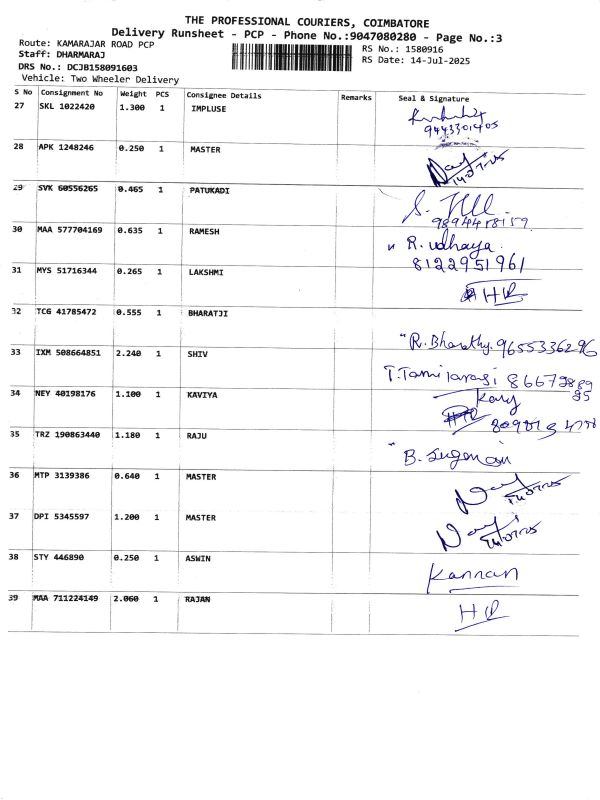 THE PROFESSIONAL COURIERS, COIMBATORE
Delivery Runsheet - PCP - Phone No.:9047080280 - Page No.:3
Route: KAMARAJAR ROAD PCP
Staff: DHARMARAJ
DRS No.: DCJB158091603
Vehicle: Two Wheeler Delivery
RS No.: 1580916
RS Date: 14-Jul-2025
S No Consignment No Weight PCS Consignee Details Remarks Seal & Signature
27 SKL 1022420 1.300 1 IMPLUSE
9443301405
28 APK 1248246 0.250 1 MASTER
29 SVK 60556265 0.465 1 PATUKADI
9894458159
30 MAA 577704169 0.635 1 RAMESH
R. Udhaya
8122951961
31 MYS 51716344 0.265 1 LAKSHMI
HR
32 TCG 41785472 0.555 1 BHARATJI
"R. Bharathy. 9655336296
33 IXM 508664851 2.240 1 SHIV
T. Tamilarasi 86672889
85
34 NEY 40198176 1.100 1 KAVIYA
35 TRZ 190863440 1.180 1 RAJU
36 MTP 3139386 0.640 1 MASTER
37 DPI 5345597 1.200 1 MASTER
38 STY 446890 0.250 1 ASWIN
Kannan
39 MAA 711224149 2.060 1 RAJAN
HR